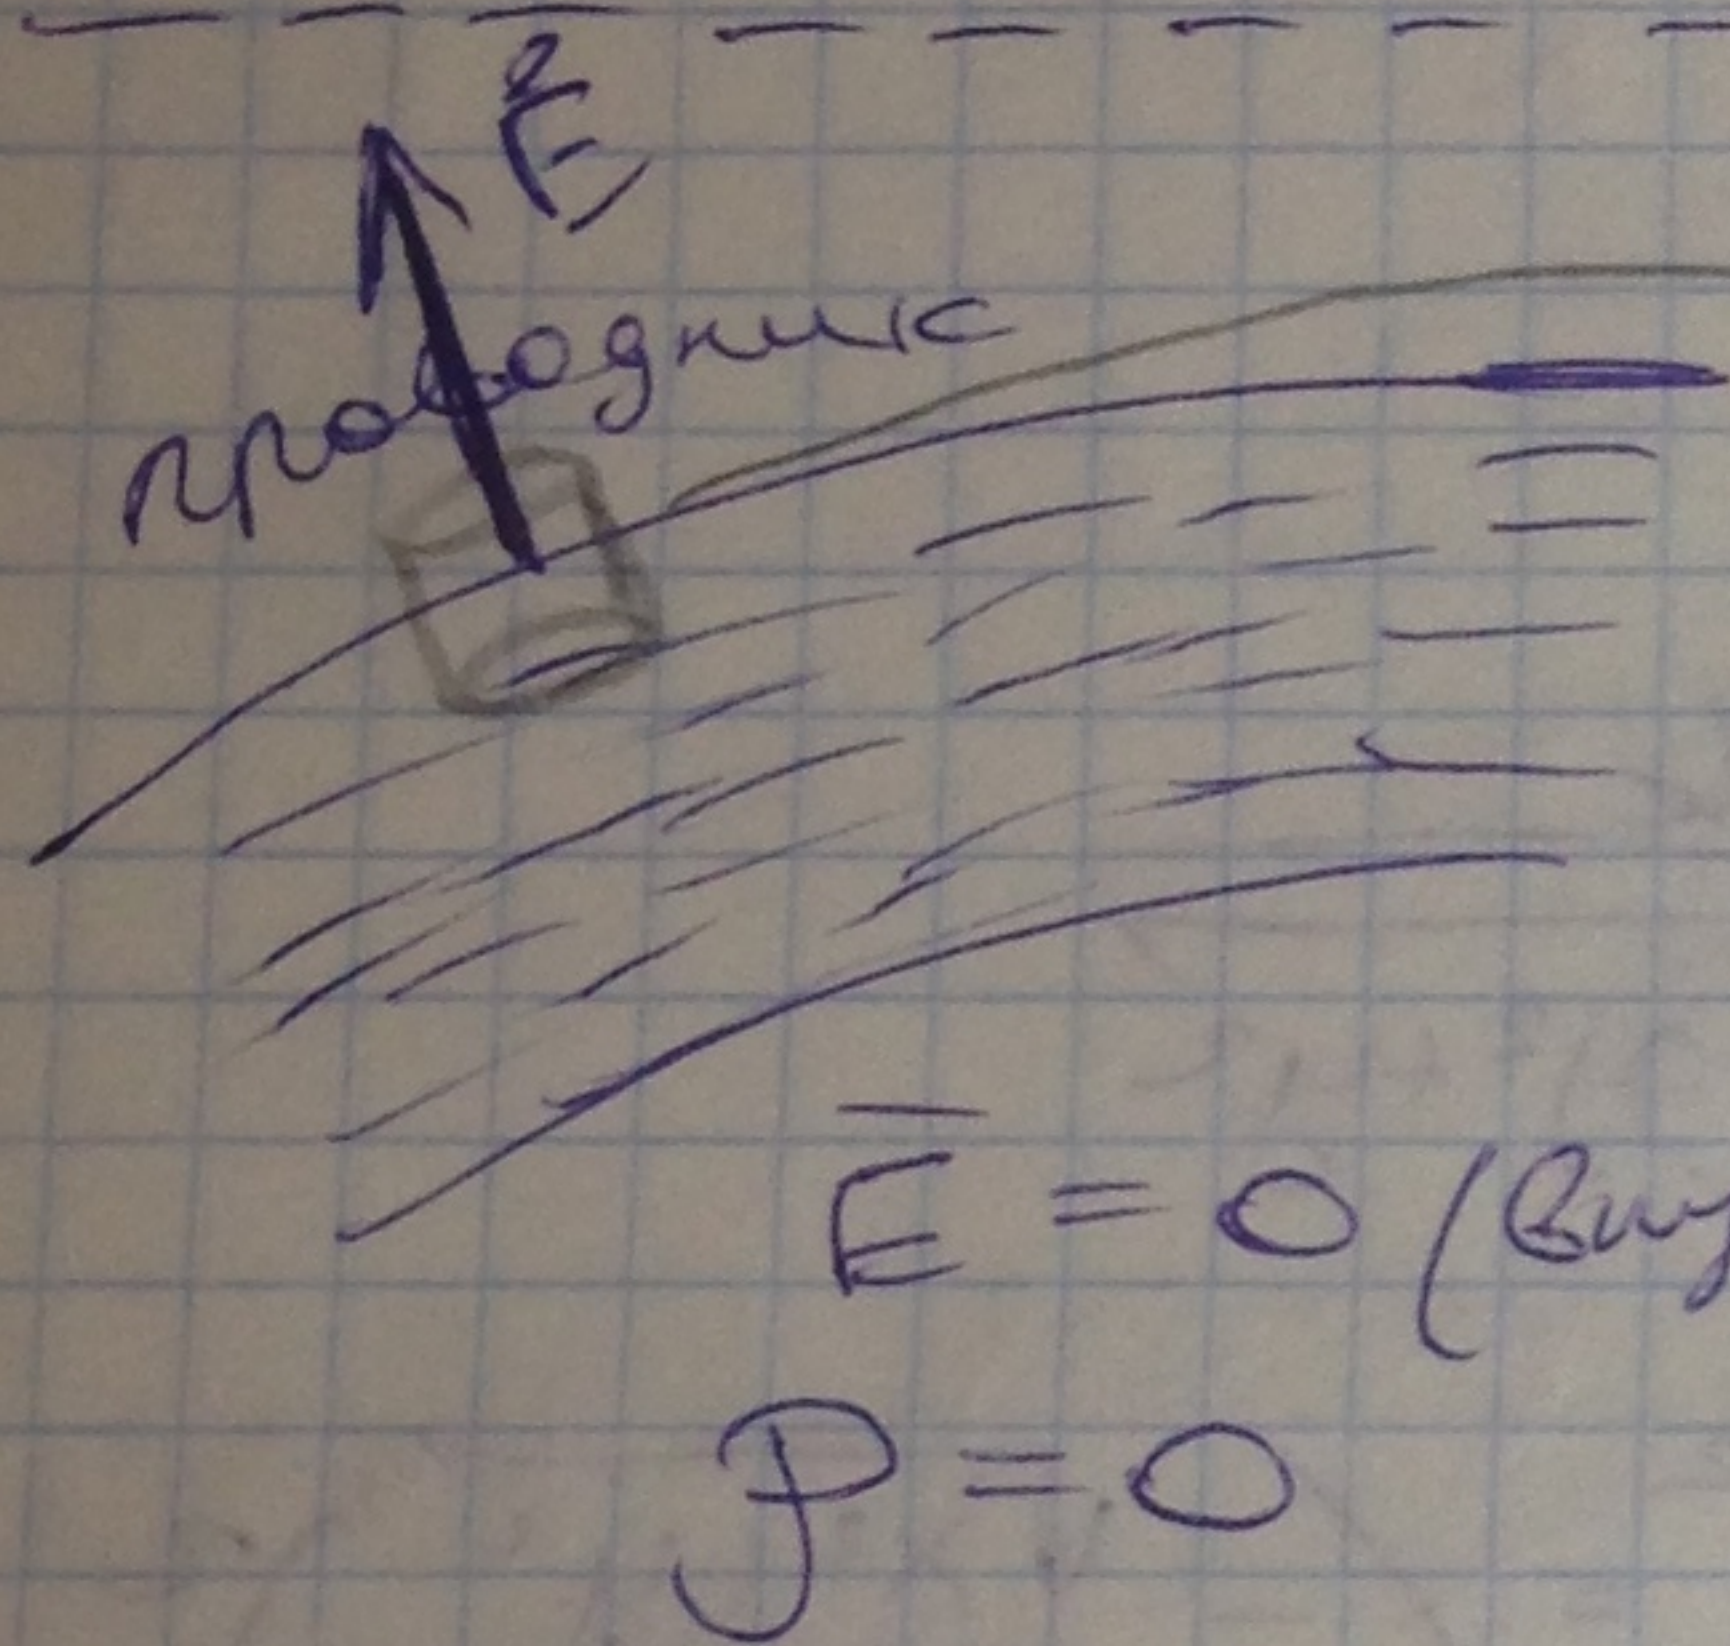 E
проводник
E = 0 (вну
ρ = 0